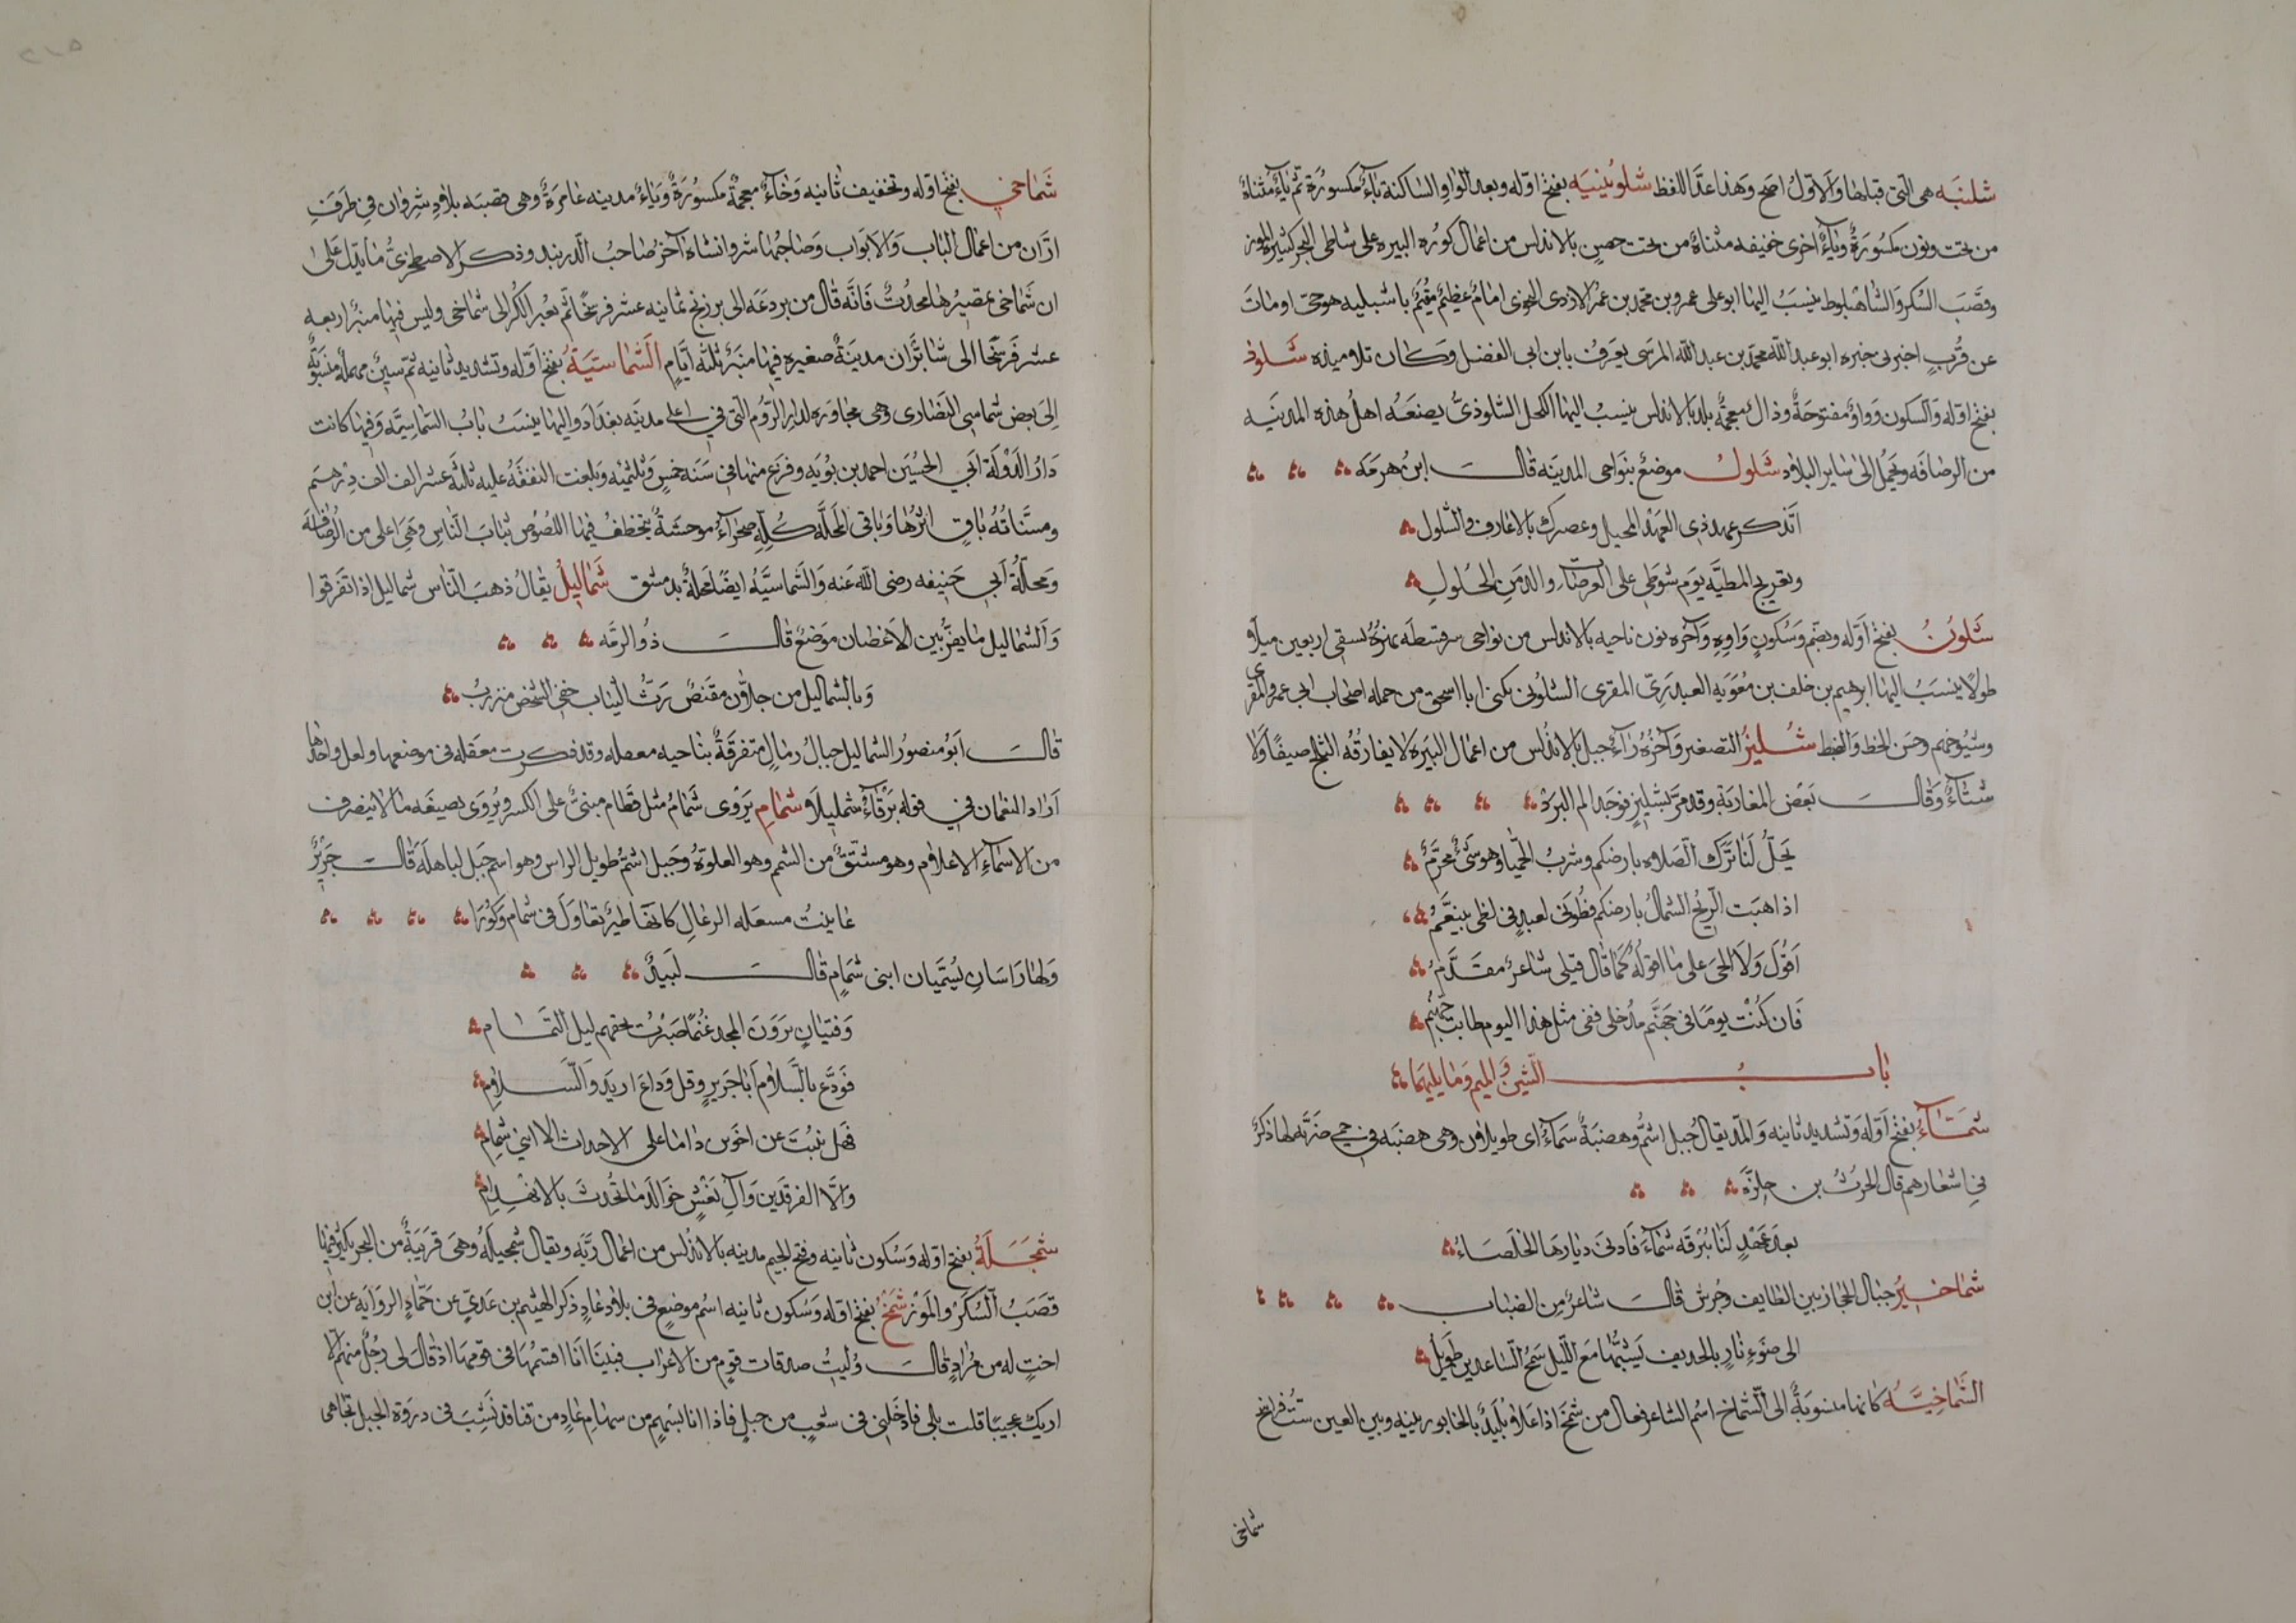 شلنبَه هى التى قبلها والاوّل اصح وهذا عدّا للفظ شلوبينيَه بفتح اوّله وبعد الواو الساكنة باء مكسورة ثم ياء مثناة
من تحت ونون مكسورة وياء اخرى خفيفه مثناة من تحت حصن بالاندلس من اعمال كوره البيره على شاطى البحر كثيره الموز
وقصب السكر والشاهبلوط ينسب اليها ابو على عمرو بن محمد بن عمر الازدى النحوى امام عظيم مقيم باشبليه هو حى او مات
عن قرب اخبرنى خبره ابو عبد الله محمد بن عبد الله المرسى يعرف بابن ابى الفضل وكان تلاميذه شلوذ
بفتح اوّله والسكون وواو مفتوحة وذال معجمة بلد بالاندلس ينسب اليها الكحل الشلوذى يصنعه اهل هذه المدينه
من الرصافه ويحمل الى ساير البلاد شلول موضع بنواحى المدينه قال ابن هرمه
اتذكر عهد ذى العهد المحيل وعصرك بالاعارف والشلول
وتعريج المطيّه يوم شوطى على العرصات والدمن الحلول
شلون بفتح اوّله وبضم وسكون واوه وآخره نون ناحيه بالاندلس من نواحى سرقسطه نهره يسقى اربعين ميلا
طولا ينسب اليها ابرهيم بن خلف بن معويه العبدرى المقرى الشلونى يكنى ابا اسحق من جمله اصحاب ابى عمرو المقرى
وشيوخهم وحسن الخط والضبط شلير التصغير وآخره راء جبل بالاندلس من اعمال البيره لا يفارقه الثلج صيفا ولا
شتاء وقال بعض المغاربة وقد مرّ بشلير فوجد الم البرد
يحلّ لنا ترك الصلاه بارضكم وشرب الحميا وهو شىء محرم
اذا هبت الريح الشمال بارضكم فطوبى لعبد فى لظى يتنعم
اقول ولا الحى على ما اقوله كما قال قبلى شاعر مقدم
فان كنت يوما فى جهنم مدخلى ففى مثل هذا اليوم طابت جهنم
باب الشين والميم وما يليهما
شمّاء بفتح اوّله وتشديد ثانيه والمد يقال جبل اشم وهضبة شماء اى طويلان وهى هضبه فى حمى ضريّه لها ذكر
فى اشعارهم قال الحرث بن حلزة
بعد عهد لنا ببرقه شماء فادنى ديارها الخلصاء
شماخير جبال الحجاز بين الطايف وجرش قال شاعر من الضباب
الى ضوء نار بالحديف يشبّها مع الليل سمح الساعدين طويل
الشماخيّه كانها منسوبة الى الشماخ اسم الشاعر فعال من شمخ اذا علا بليد بالخابور بينه وبين العين ستّ فراسخ
شماخى
شماخى بفتح اوّله وتخفيف ثانيه وخاء معجمة مكسورة وياء مدينه عامرة وهى قصبه بلاد شروان فى طرف
ارّان من اعمال الباب والابواب وصاحبها شروانشاه آخر صاحب الدربند وذكر الاصطخرى ما يدل على
ان شماخى تمصيرها محدث فانه قال من بردعه الى برزنج ثمانيه عشر فرسخا ثم يعبر الكر الى شماخى وليس فيها منبر اربعه
عشر فرسخا الى شابران مدينة صغيره فيها منبر ثلثه ايام الشماسيّة بفتح اوّله وتشديد ثانيه ثم سين مهملة منسوبة
الى بعض شماسى النصارى وهى مجاوره لدار الروم التى فى اعلى مدينه بغداد واليها ينسب باب الشماسيّه وفيها كانت
دار الدولة ابى الحسين احمد بن بويه وفرغ منها فى سنه خمس وثلثمئه وبلغت النفقه عليه ثلثة عشر الف الف درهم
ومسناته باق اثرها وباقى المحلّه كله صحراء موحشة يتخطف فيها اللصوص ثياب الناس وهى اعلى من الرصافه
ومحلّة ابى حنيفه رضى الله عنه والشماسيّه ايضا محلة بدمشق شماليل يقال ذهب الناس شماليل اذا تفرقوا
والشماليل ما يفرّ بين الاغصان موضع قال ذو الرمه
وبالشماليل من جلان مقتنص رث الثياب خفى الشخص منزرب
قال ابو منصور الشماليل جبال رمال متفرقة بناحيه معقله وقد ذكرت معقله فى موضعها ولعل واحدها
اراد النعمان فى قوله برقاء شمليلا شمام يروى شمام مثل قطام مبنى على الكسر ويروى بصيغه ما لا ينصرف
من الاسماء الاعلام وهو مشتق من الشمم وهو العلو وجبل اشم طويل الراس وهو اسم جبل لباهلة قال جرير
عاينت مسعله الرعال كانها طير تغاول فى شمام وكورا
ولها راسان يسميان ابنى شمام قال لبيد
وفتيان يرون المجد غنما صبرت بحقهم ليل التمام
فودع بالسلام ابا جرير وقل وداع اربد والسلام
فهل نبئت عن اخوين داما على الاحداث الا ابنى شمام
والا الفرقدين وآل نعش خوالد ما تحدث بالانهدام
شمجلة بفتح اوله وسكون ثانيه وفتح الجيم مدينه بالاندلس من اعمال ريّه ويقال شمجيله وهى قريبة من البحر يكثر فيها
قصب السكر والموز شمخ بفتح اوّله وسكون ثانيه اسم موضع فى بلاد عاد ذكر الهيثم بن عدى عن حماد الروايه عن ابن
اخت له من مراد قال وليت صدقات قوم من الاعراب فبينا انا اقسمها فى قومها اذ قال لى رجل منهم الا
اريك عجيبا قلت بلى فادخلنى فى شعب من جبل فاذا انا بسهم من سهام عاد من قنا قد نشب فى دروة الجبل تجاهى